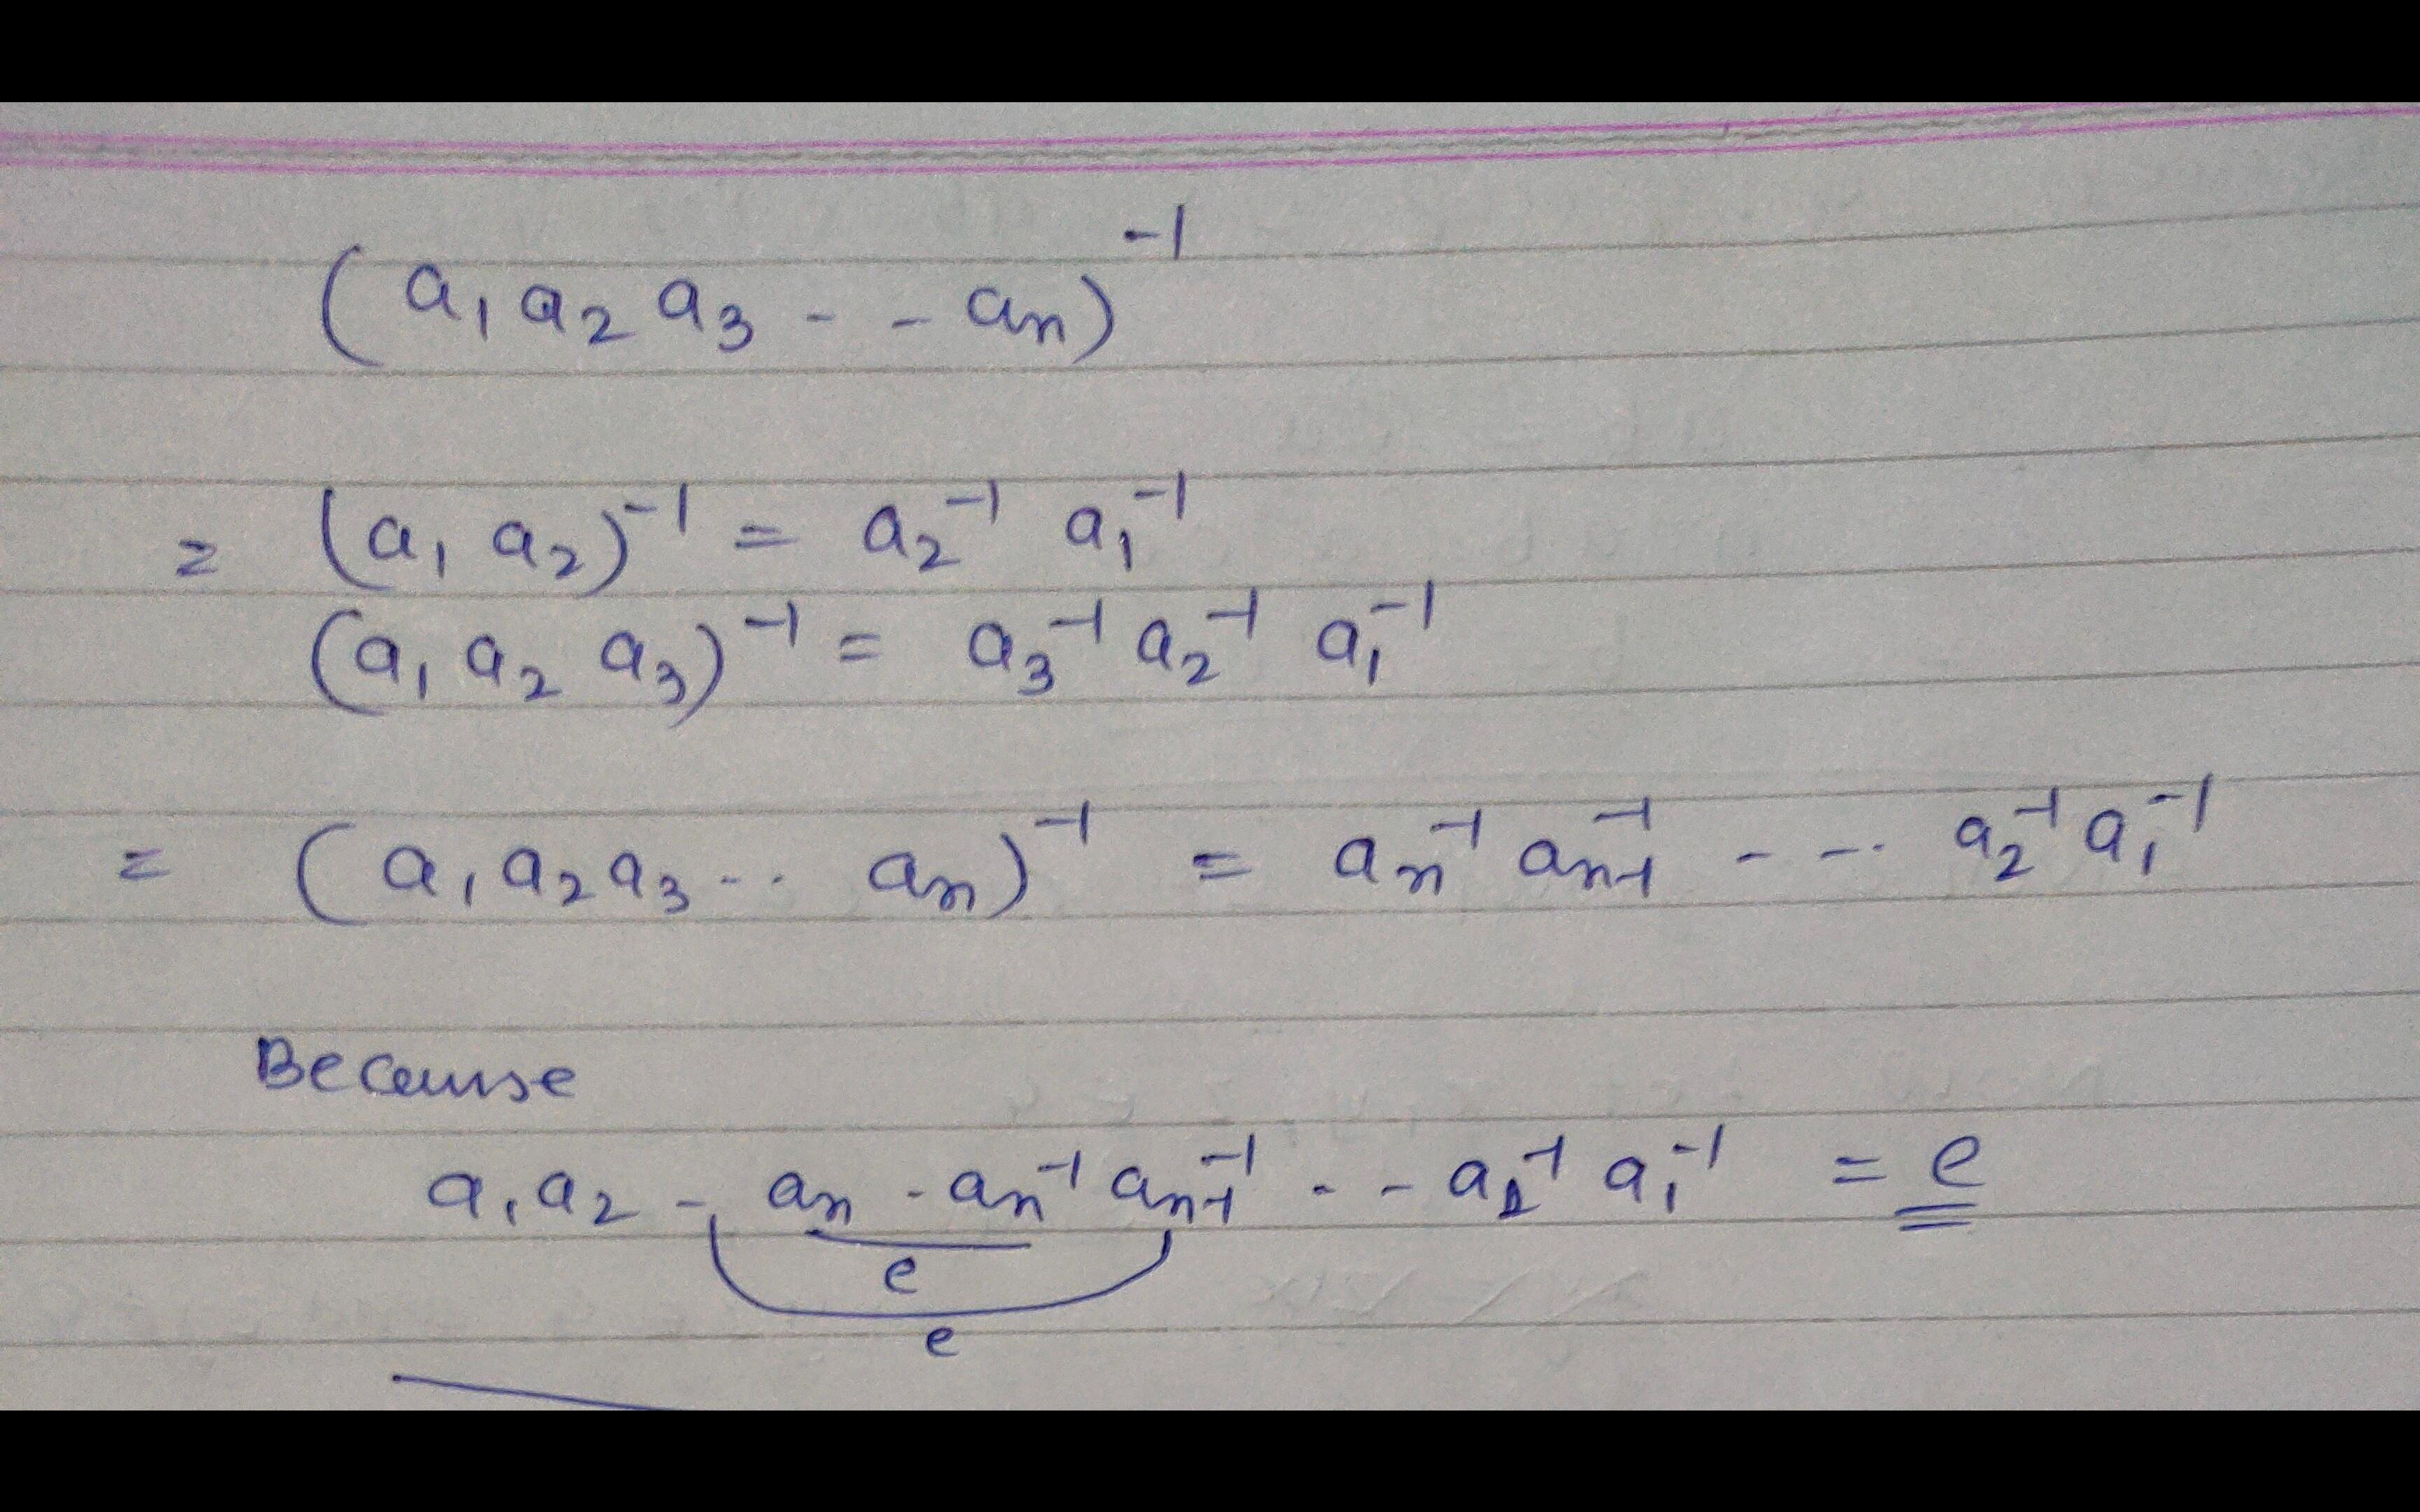 (a₁ a₂ a₃ - - aₙ)⁻¹
= (a₁ a₂)⁻¹ = a₂⁻¹ a₁⁻¹
(a₁ a₂ a₃)⁻¹ = a₃⁻¹ a₂⁻¹ a₁⁻¹
= (a₁ a₂ a₃ - - - aₙ)⁻¹ = aₙ⁻¹ aₙ₋₁⁻¹ - - - - a₂⁻¹ a₁⁻¹
Because
a₁ a₂ - aₙ · aₙ⁻¹ aₙ₋₁⁻¹ - - a₂⁻¹ a₁⁻¹ = e
e
e